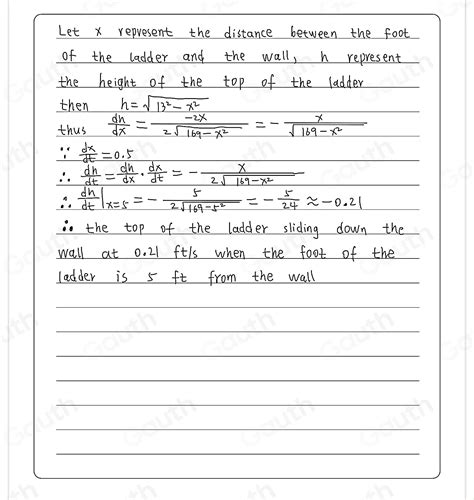 Let x represent the distance between the foot
of the ladder and the wall, h represent
the height of the top of the ladder
then h = √(13² − x²)
thus dh/dx = −2x / 2√(169 − x²) = − x / √(169 − x²)
∵ dx/dt = 0.5
∴ dh/dt = dh/dx · dx/dt = − x / 2√(169 − x²)
∴ dh/dt |x=5 = − 5 / 2√(169 − 5²) = − 5/24 ≈ −0.21
∴ the top of the ladder sliding down the
wall at 0.21 ft/s when the foot of the
ladder is 5 ft from the wall
Gauth